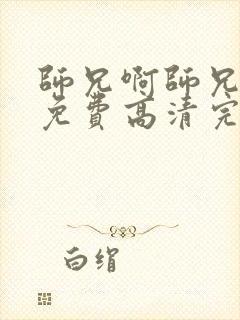 師兄啊師兄
免費高清完
白绢